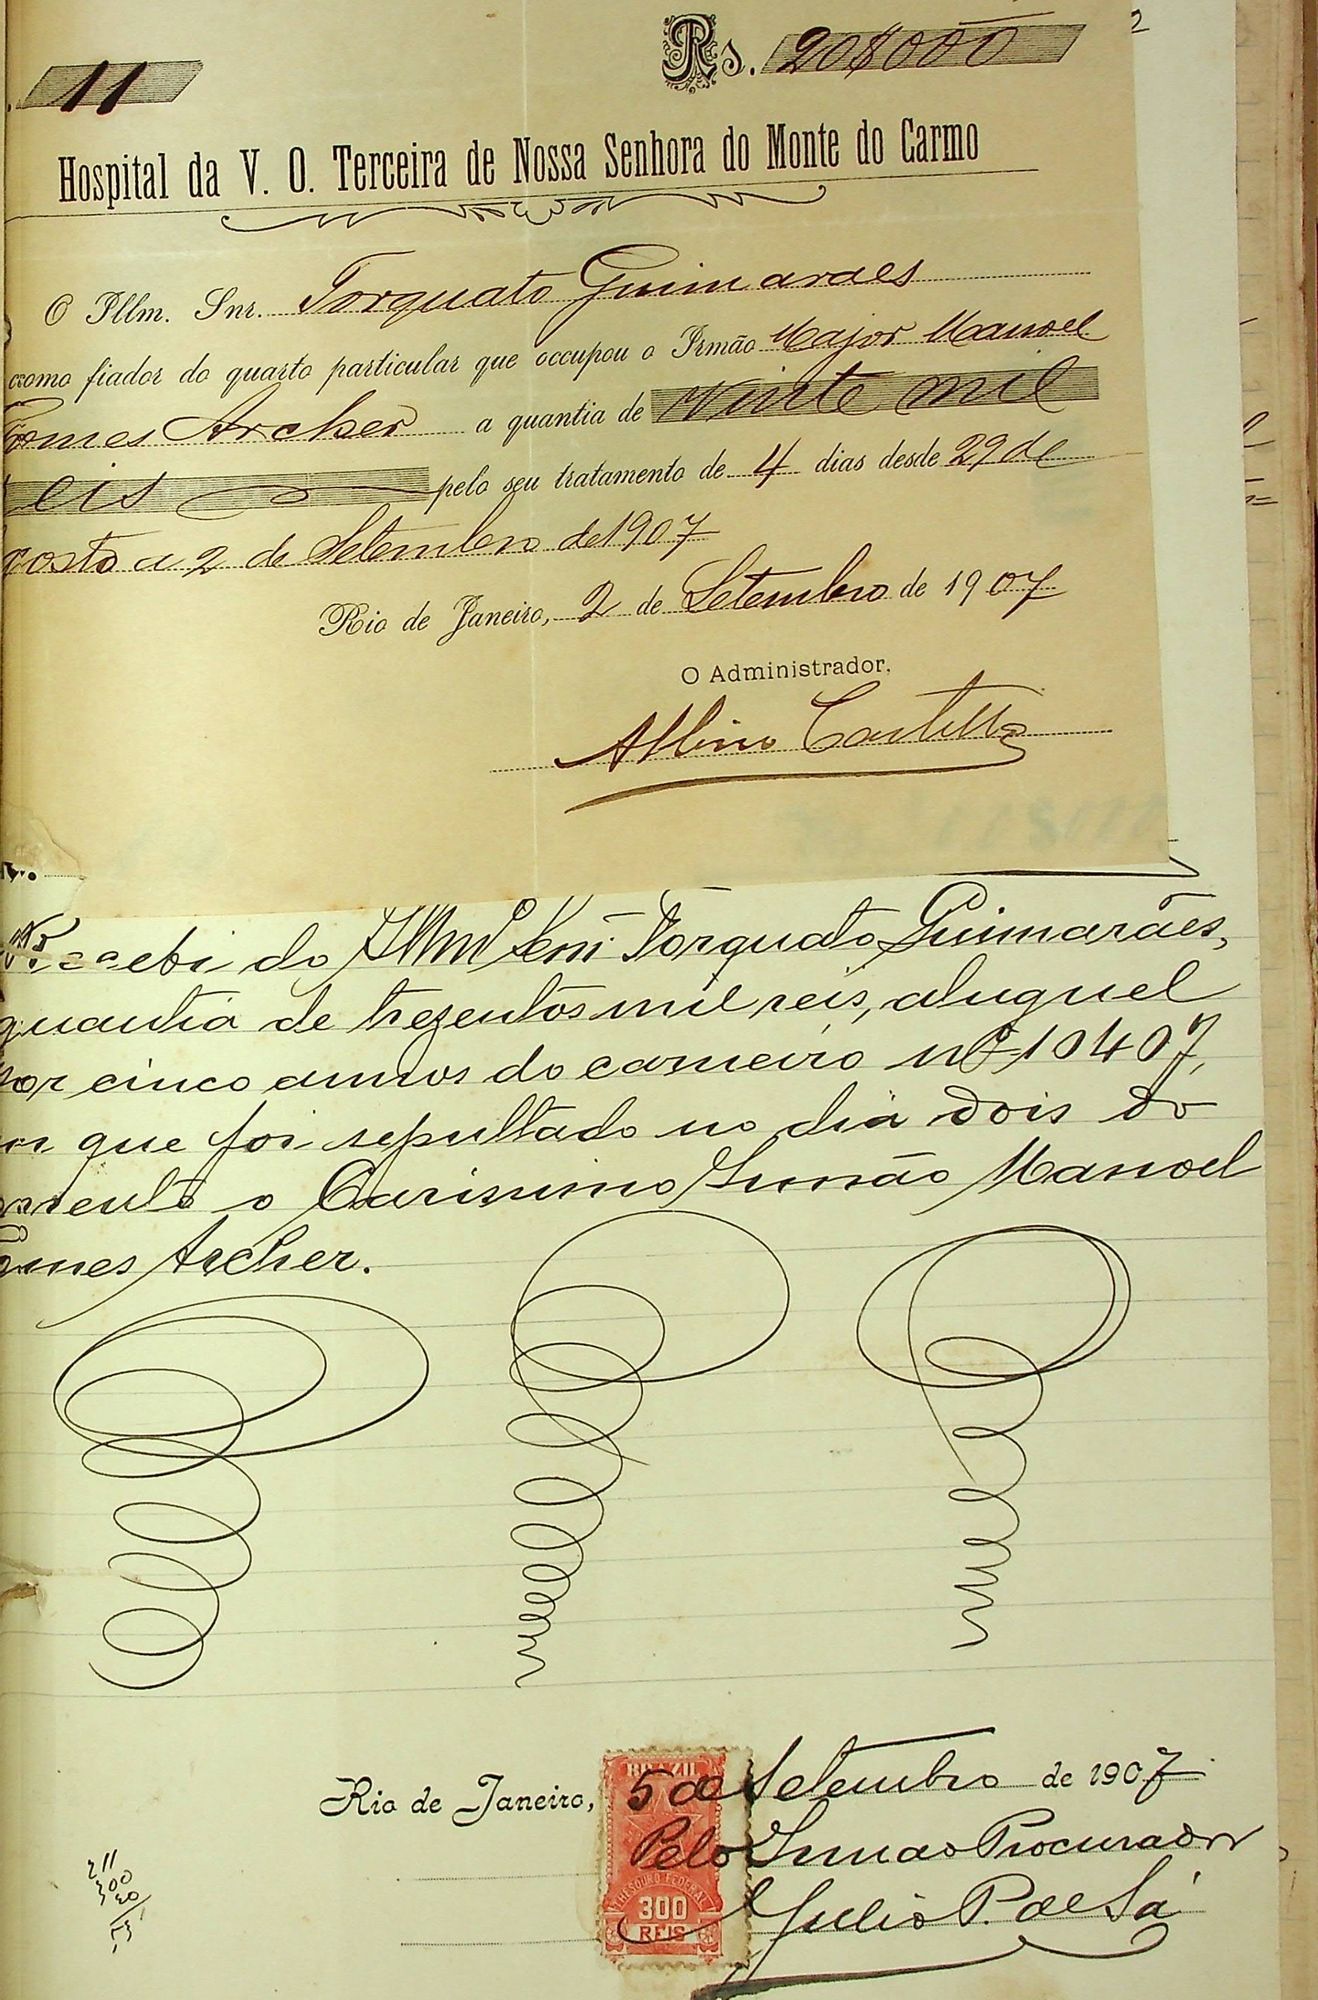 11 Rs. 20$000
Hospital da V. O. Terceira de Nossa Senhora do Monte do Carmo
O Illm. Snr. Torquato Guimaraes
como fiador do quarto particular que occupou o Irmão Major Manoel
Gomes Archer a quantia de vinte mil
eis pelo seu tratamento de 4 dias desde 29 de
gosto a 2 de Setembro de 1907
Rio de Janeiro, 2 de Setembro de 1907
O Administrador,
Albino
Recebi do Illmo Snr. Torquato Guimarães,
quantia de trezentos mil reis, aluguel
por cinco annos do carneiro nº 10407,
em que foi sepultado no dia dois do
orrente o Carissimo Irmão Manoel
omes Archer.
Rio de Janeiro, 5 de Setembro de 1907
Pelo Irmao Procurador
Julio P. de Sá
BRAZIL
THESOURO FEDERAL
300
REIS
211
300
20